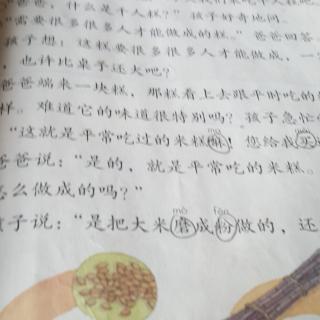 爸爸，什么是千人糕？”孩子好奇地问。
“需要很多很多人才能做成的糕。”爸爸回答。
孩子想：这糕要很多很多人才能做成，一
，也许比桌子还大吧？
爸爸端来一块糕，那糕看上去跟平时吃的
样。难道它的味道很特别吗？孩子急忙
“这就是平常吃过的米糕嘛！您给我买
爸爸说：“是的，就是平常吃的米糕。
怎么做成的吗？”
孩子说：“是把大米磨mò成粉fěn做的，还